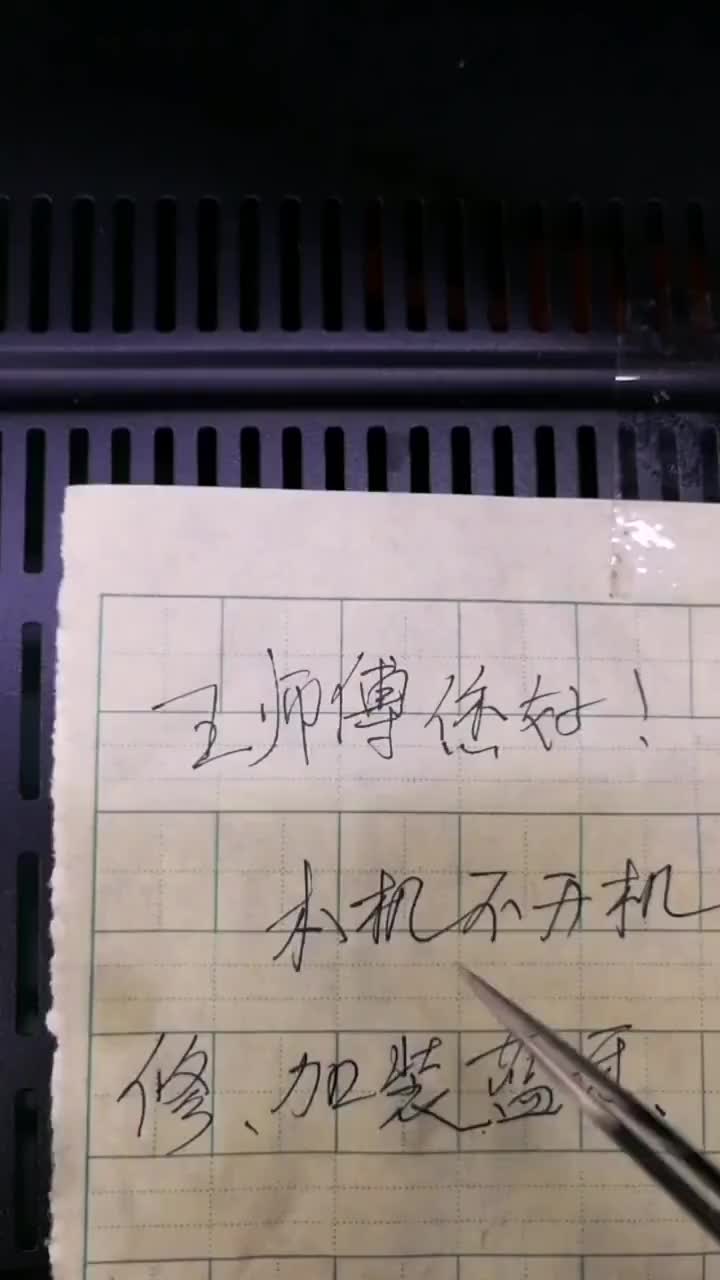 王师傅您好！
本机不开机
修、加装蓝牙、